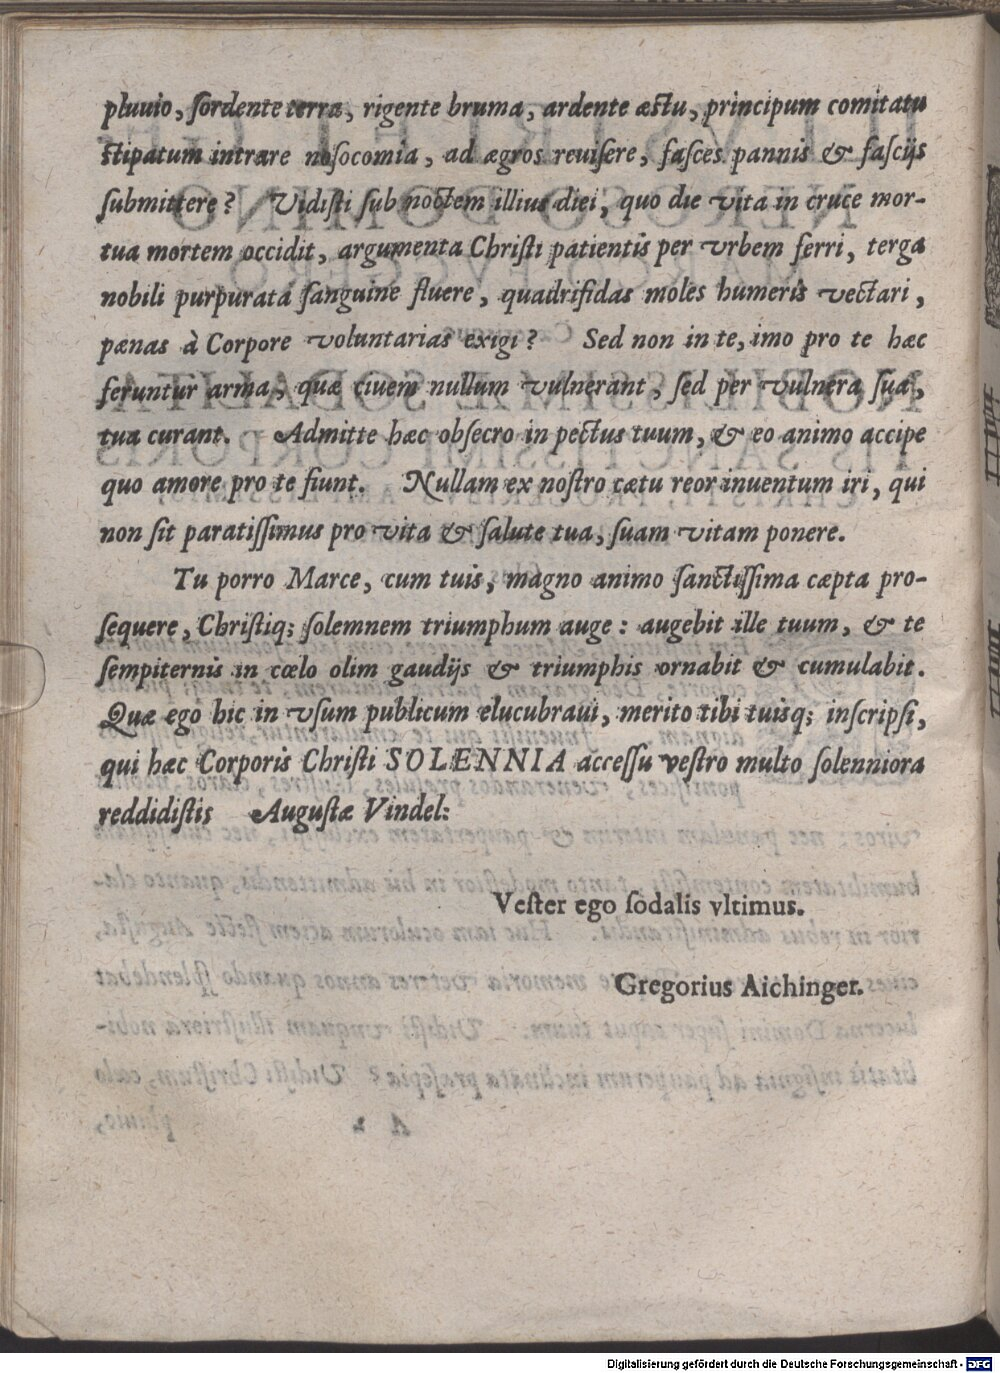 pluuio, ſordente terra, rigente bruma, ardente æſtu, principum comitatu
ſtipatum intrare noſocomia, ad ægros reuiſere, faſces pannis & faſcijs
ſubmittere? Vidiſti ſub noctem illius diei, quo die vita in cruce mor-
tua mortem occidit, argumenta Chriſti patientis per vrbem ferri, terga
nobili purpurata ſanguine fluere, quadrifidas moles humeris vectari,
pænas à Corpore voluntarias exigi? Sed non in te, imo pro te hæc
feruntur arma, quæ ciuem nullum vulnerant, ſed per vulnera ſua,
tua curant. Admitte hæc obſecro in pectus tuum, & eo animo accipe
quo amore pro te fiunt. Nullam ex noſtro cætu reor inuentum iri, qui
non ſit paratiſſimus pro vita & ſalute tua, ſuam vitam ponere.
Tu porro Marce, cum tuis, magno animo ſanctiſſima cæpta pro-
ſequere, Chriſtiq; ſolemnem triumphum auge: augebit ille tuum, & te
ſempiternis in cœlo olim gaudijs & triumphis ornabit & cumulabit.
Quæ ego hic in vſum publicum elucubraui, merito tibi tuisq; inſcripſi,
qui hæc Corporis Chriſti SOLENNIA acceſſu veſtro multo ſolenniora
reddidiſtis Auguſtæ Vindel:
Veſter ego ſodalis vltimus.
Gregorius Aichinger.
Digitalisierung gefördert durch die Deutsche Forschungsgemeinschaft - DFG